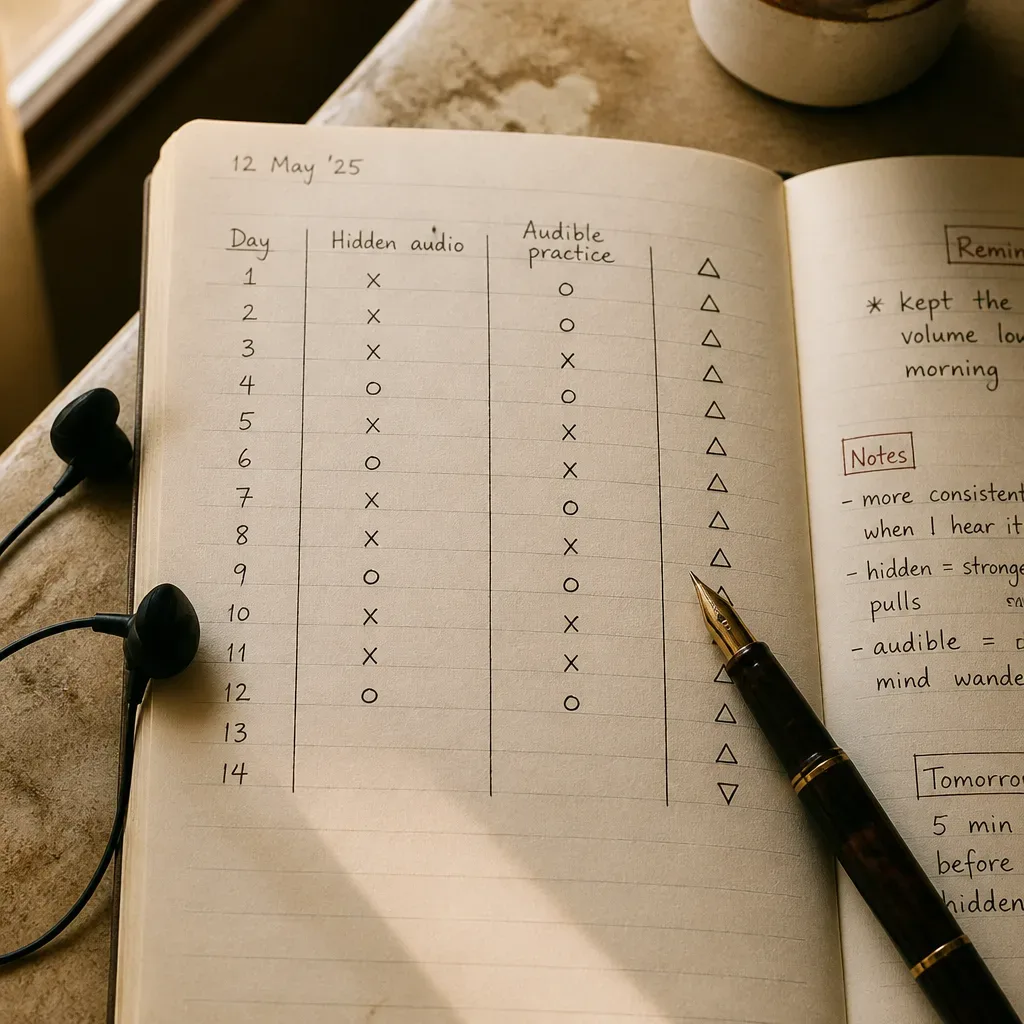 12 May '25
Day Hidden audio Audible
practice
1 X O △
2 X O △
3 X X △
4 O O △
5 X X △
6 O X △
7 X O △
8 X X △
9 O O △
10 X X △
11 X X
12 O O △
13 △
14 △
▽
Remin
* kept the
volume
morning
Notes
- more consistent
when I hear it
- hidden = stronge
pulls
- audible =
mind wande
Tomorro
5 min
before
hidden